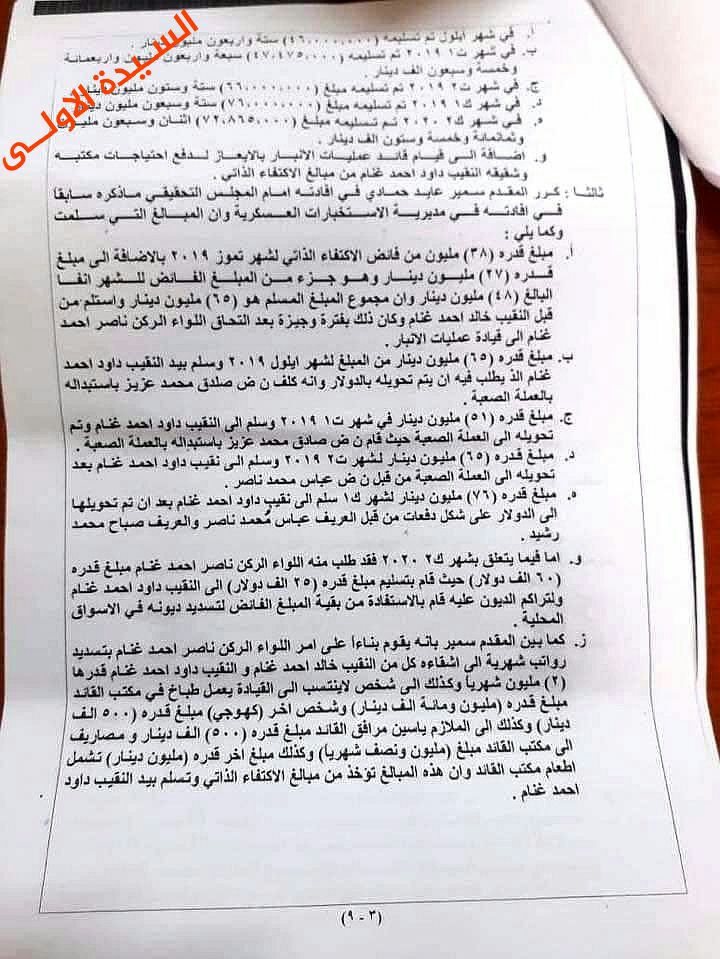 السيدة الاولى
أ. في شهر ايلول تم تسليمه (٤٦,٠٠٠,٠٠٠) ستة واربعون مليون دينار .
ب. في شهر ت١ ٢٠١٩ تم تسليمه (٤٧,٤٧٥,٠٠٠) سبعة واربعون مليون واربعمائة
وخمسة وسبعون الف دينار .
ج. في شهر ت٢ ٢٠١٩ تم تسليمه مبلغ (٦٦,٠٠٠,٠٠٠) ستة وستون مليون دينار
د. في شهر ك١ ٢٠١٩ تم تسليمه مبلغ (٧٦,٠٠٠,٠٠٠) ستة وسبعون مليون دينار
ه. في شهر ك٢ ٢٠٢٠ تم تسليمه مبلغ (٧٢,٨٦٥,٠٠٠) اثنان وسبعون مليون
وثمانمائة وخمسة وستون الف دينار .
و. اضافة الى قيام قائد عمليات الانبار بالايعاز لدفع احتياجات مكتبه
وشقيقه النقيب داود احمد غنام من مبالغ الاكتفاء الذاتي .
ثالثا : كرر المقدم سمير عابد حمادي في افادته امام المجلس التحقيقي ماذكره سابقاً
في افادته في مديرية الاستخبارات العسكرية وان المبالغ التي سلمت
وكما يلي :
أ. مبلغ قدره (٣٨) مليون من فائض الاكتفاء الذاتي لشهر تموز ٢٠١٩ بالاضافة الى مبلغ
قدره (٢٧) مليون دينار وهو جزء من المبلغ الفائض للشهر انفا
البالغ (٤٨) مليون دينار وان مجموع المبلغ المسلم هو (٦٥) مليون دينار واستلم من
قبل النقيب خالد احمد غنام وكان ذلك بفترة وجيزة بعد التحاق اللواء الركن ناصر احمد
غنام الى قيادة عمليات الانبار .
ب. مبلغ قدره (٦٥) مليون دينار من المبلغ لشهر ايلول ٢٠١٩ وسلم بيد النقيب داود احمد
غنام الذ يطلب فيه ان يتم تحويله بالدولار وانه كلف ن ض صلدق محمد عزيز باستبداله
بالعملة الصعبة .
ج. مبلغ قدره (٥١) مليون دينار في شهر ت١ ٢٠١٩ وسلم الى النقيب داود احمد غنام وتم
تحويله الى العملة الصعبة حيث قام ن ض صادق محمد عزيز باستبداله بالعملة الصعبة .
د. مبلغ قدره (٦٥) مليون دينار لشهر ت٢ ٢٠١٩ وسلم الى نقيب داود احمد غنام بعد
تحويله الى العملة الصعبة من قبل ن ض عباس محمد ناصر .
ه. مبلغ قدره (٧٦) مليون دينار لشهر ك١ سلم الى نقيب داود احمد غنام بعد ان تم تحويلها
الى الدولار على شكل دفعات من قبل العريف عباس محمد ناصر والعريف صباح محمد
رشيد .
و. اما فيما يتعلق بشهر ك٢ ٢٠٢٠ فقد طلب منه اللواء الركن ناصر احمد غنام مبلغ قدره
(٦٠ الف دولار) حيث قام بتسليم مبلغ قدره (٢٥ الف دولار) الى النقيب داود احمد غنام
ولتراكم الديون عليه قام بالاستفادة من بقية المبلغ الفائض لتسديد ديونه في الاسواق
المحلية .
ز. كما بين المقدم سمير بانه يقوم بناءاً على امر اللواء الركن ناصر احمد غنام بتسديد
رواتب شهرية الى اشقاءه كل من النقيب خالد احمد غنام و النقيب داود احمد غنام قدرها
(٢) مليون شهرياً وكذلك الى شخص لاينتسب الى القيادة يعمل طباخ في مكتب القائد
مبلغ قدره (مليون ومائة الف دينار) وشخص اخر (كهوجي) مبلغ قدره (٥٠٠ الف
دينار) وكذلك الى الملازم ياسين مرافق القائد مبلغ قدره (٥٠٠) الف دينار و مصاريف
الى مكتب القائد مبلغ (مليون ونصف شهرياً) وكذلك مبلغ اخر قدره (مليون دينار) تشمل
اطعام مكتب القائد وان هذه المبالغ تؤخذ من مبالغ الاكتفاء الذاتي وتسلم بيد النقيب داود
احمد غنام .
(٣ - ٩)